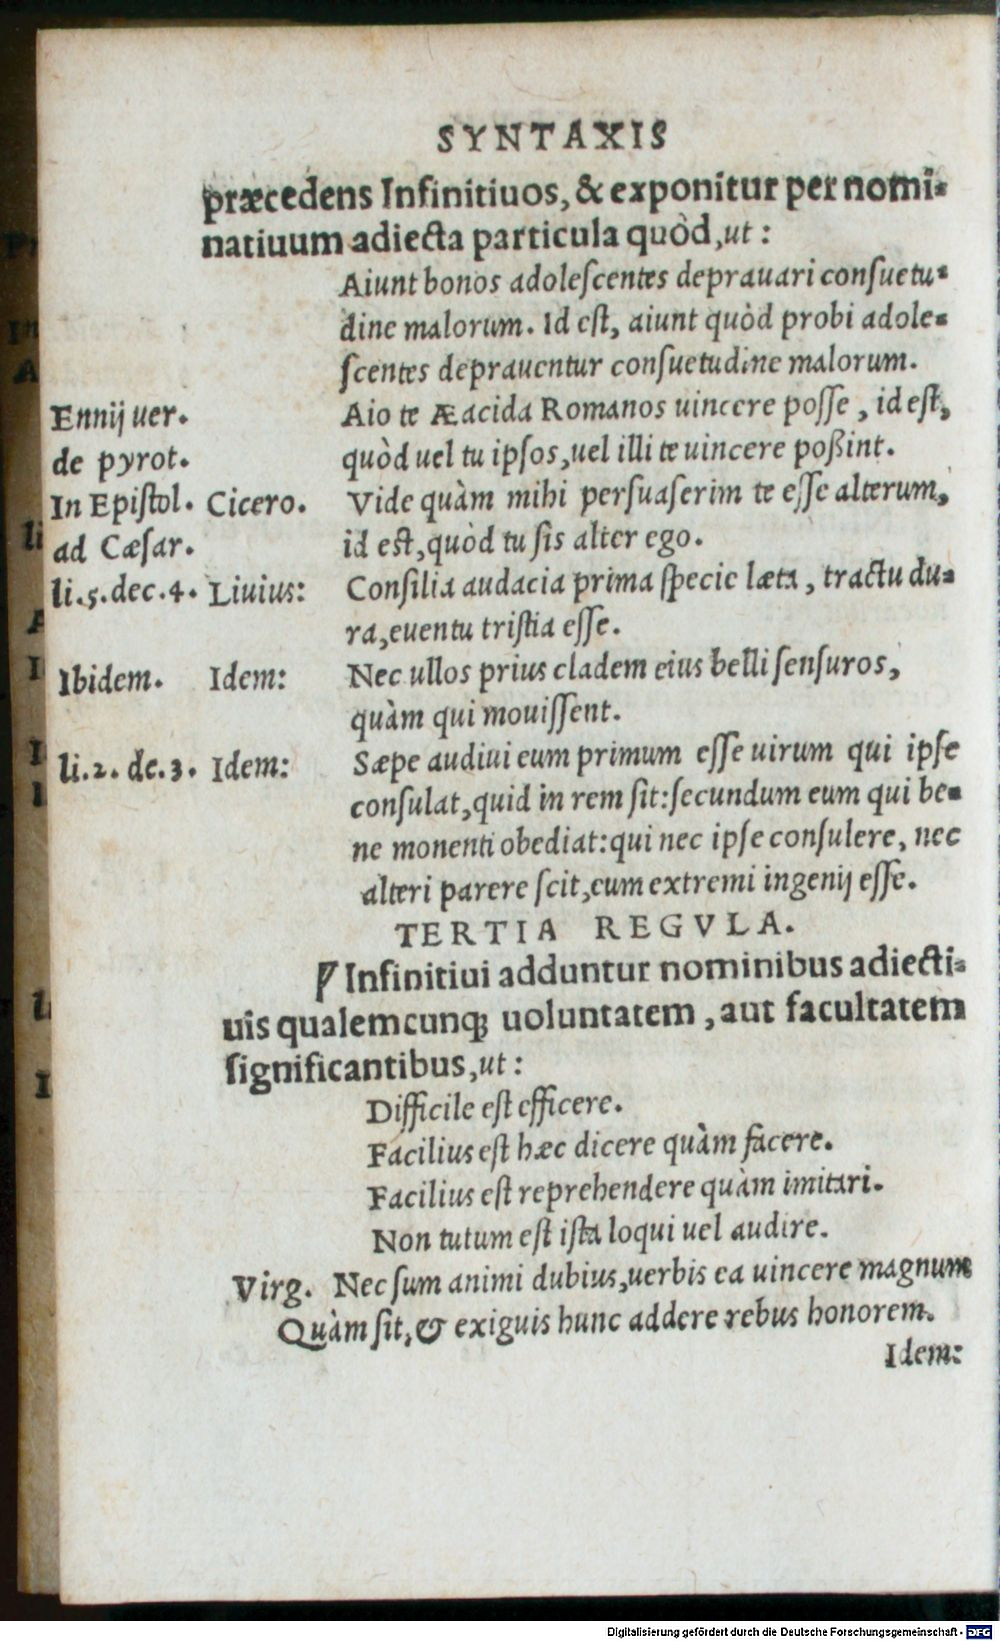 SYNTAXIS
præcedens Infinitiuos, & exponitur per nomi-
natiuum adiecta particula quòd, ut:
Aiunt bonos adolescentes deprauari consuetu-
dine malorum. Id est, aiunt quòd probi adole-
scentes deprauentur consuetudine malorum.
Ennij uer. Aio te Æacida Romanos uincere posse, id est,
de pyrot. quòd uel tu ipsos, uel illi te uincere poßint.
In Epistol. Cicero. Vide quàm mihi persuaserim te esse alterum,
ad Cæsar. id est, quòd tu sis alter ego.
li.5.dec.4. Liuius: Consilia audacia prima specie læta, tractu du-
ra, euentu tristia esse.
Ibidem. Idem: Nec ullos prius cladem eius belli sensuros,
quàm qui mouissent.
li.2. de.3. Idem: Sæpe audiui eum primum esse uirum qui ipse
consulat, quid in rem sit: secundum eum qui be-
ne monenti obediat: qui nec ipse consulere, nec
alteri parere scit, eum extremi ingenij esse.
TERTIA REGVLA.
Infinitiui adduntur nominibus adiecti-
uis qualemcunq; uoluntatem, aut facultatem
significantibus, ut:
Difficile est efficere.
Facilius est hæc dicere quàm facere.
Facilius est reprehendere quàm imitari.
Non tutum est ista loqui uel audire.
Virg. Nec sum animi dubius, uerbis ea uincere magnum
Quàm sit, & exiguis hunc addere rebus honorem.
Idem:
Digitalisierung gefördert durch die Deutsche Forschungsgemeinschaft - DFG